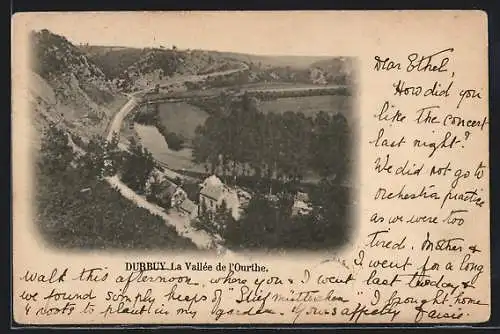 Dear Ethel,
How did you
like the concert
last night?
We did not go to
orchestra practice
as we were too
tired. Mother &
I went for a long
DURBUY La Vallée de l'Ourthe.
walk this afternoon, where you & I went last Tuesday &
we found simply heaps of Stiefmütterchen. I brought home
4 roots to plant in my garden. Yours affectly Daisie.